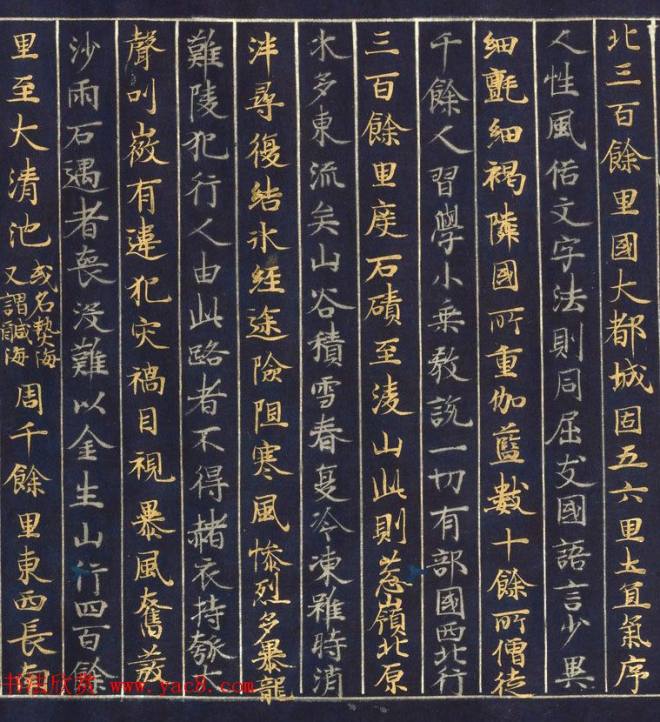 北三百餘里國大都城固五六里土宜氣序
人性風俗文字法則同屈支國語言少異
細氎細褐隣國所重伽藍數十餘所僧徒
千餘人習學小乘教說一切有部國西北行
三百餘里度石磧至淩山此則葱嶺北原
水多東流矣山谷積雪春夏冷凍雖時消
泮尋復結氷經途險阻寒風慘烈多暴龍
難陵犯行人由此路者不得赭衣持瓠大
聲叫㣲有違犯灾禍目視暴風奮發
沙雨石遇者喪没難以全生山行四百餘
里至大清池或名熱海又謂鹹海周千餘里東西長南
书法欣赏 www.yac8.com